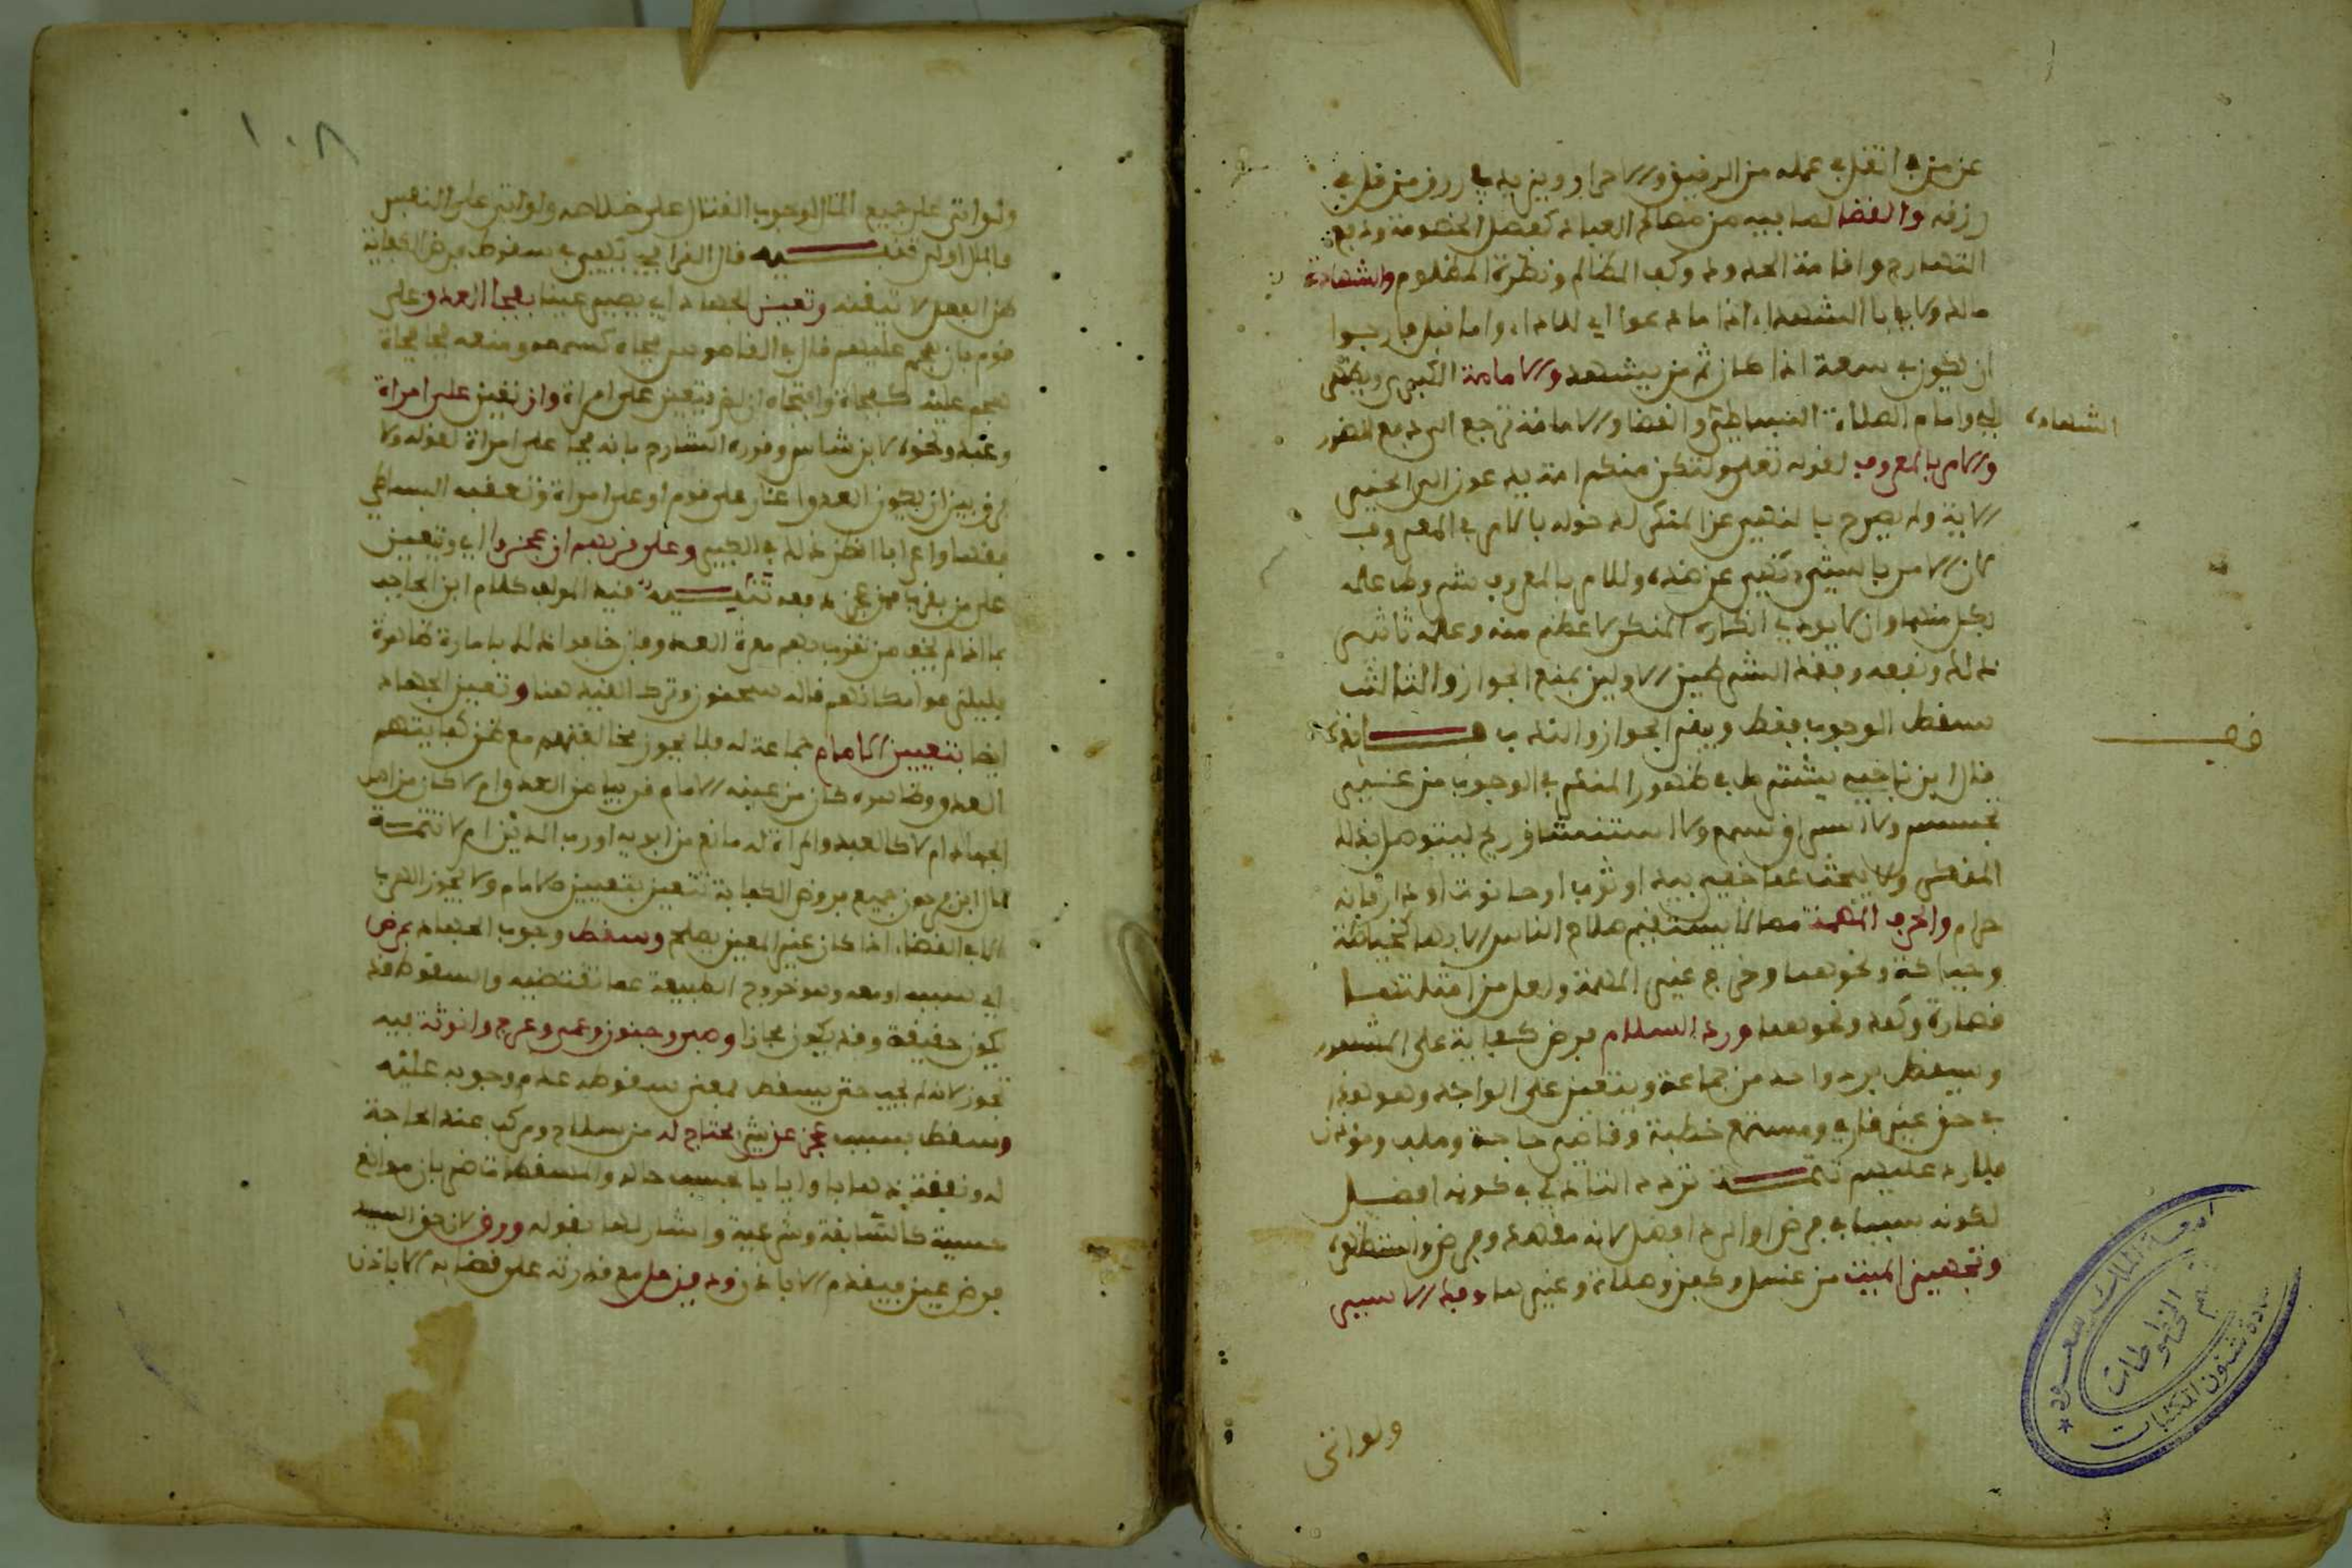 عن من في انفل في عمله من الرقيق والاحرار ويزيد في رزق من قل في
رزقه والقضا لما فيه من مصالح العباد كفصل الخصومة ودفع
التهارج واقامة الحدود وكف المظالم ونصرة المظلوم والشهادة
ولا ياب الشهداء اذا ما دعوا اي للاداء واما قبل فارجوا
ان يكون في سعة اذا كان ثم من يشهد والامامة الكبرى ويحتمل
اي وامام الصلاة البساطي والقضا والامامة ترجع الى دفع الضرر
الشهادة
والامر بالمعروف لقوله تعلى ولتكن منكم امة يدعون الى الخير
الاية ولم يصرح بالنهي عن المنكر لدخوله بالامر في المعروف
لان الامر بالشيء نهي عن ضده وللامر بالمعروف شروط علمه
بكل منهما وان لا يودي انكاره المنكر لاعظم منه وعلم تاثير
ذلك ونفعه وفقد الشرطين الاولين يمنع الجواز والثالث
يسقط الوجوب فقط ويبقى الجواز والندب فائدة
قف
قال ابن ناجي يشترط في ظهور المنكر في الوجوب من غير
تجسس ولا استراق سمع ولا استنشاق ريح ليتوصل بذلك
المنكر ولا يبحث عما خفي بيد او ثوب او حانوت او دار فانه
حرام والحرف المهمة مما لا يستقيم صلاح الناس الا بها كخياطة
وحياكة ونحوهما وخرج غير المهمة ولعل من امثلتها
قصارة ونحوهما ورد السلام فرض كفاية على المشهور
ويسقط برد واحد من جماعة ويتعين على الواحد وهو
في حق غير قاري ومستمع خطبة وقاضي حاجة وملب ومؤذن
فلا رد عليهم تتمة تردد التادلي في كونه افضل
لكونه سببا في فرض او الرد افضل لانه مقصد وفرض
وتجهيز الميت من غسل وكفن وصلاة وغيرها وفك الاسير
ولو اتى
١٠٨
ولو اتى على جميع المال لوجوب القتال على خلاصه ولو اتى على النفس
فالمال اولى تنبيه قال القرافي يكفي في سقوط فرض الكفاية
ظن الفعل لا تيقنه وتعين الجهاد اي يصير عينا بفجا العدو على
قوم بان هجم عليهم قال في القاموس فجاه كسمعه ومنعه فجا فجاة
هجم عليه كفجاه وافتجاه ان لم يتعين على امراة وان تعين على امراة
وعبد ونحوه لابن شاس وقرره الشارح بانه فجا على امراة لقوله لا
فرق بين ان يكون العدو اغار على قوم او على امراة وتعقبه البساطي
انظر ذلك في الكبير وعلى قربهم ان عجزوا اي وتعين
على من بقرب من عجز دفعه تنبيه قيد المؤلف كلام ابن الحاجب
بما اذا لم يخف من بقربهم معرة العدو فان خافوا ذلك بامارة ظاهرة
فليلزموا مكانهم قاله سحنون وترك القيد هنا وتعين الجهاد
ايضا بتعيين الامام جماعة له فلا يجوز مخالفتهم مع كفايتهم
العدو وظاهره كان من عينه الامام قريبا من العدو ام لا كان من اهل
الجهاد ام لا كالعبد والمراة له مانع من ابويه او رب الدين ام لا تتمة
قال ابن فرحون جميع فروض الكفاية تتعين بتعيين الامام ولا يجوز الهرب
الا في القضاء اذا كان غير المعين يصلح وسقط وجوب الجهاد بمرض
اي سبب وهو خروج الطبيعة عما تقتضيه والسقوط قد
يكون حقيقة وقد يكون مجازا وصبى وجنون وعمى وعرج وانوثة فيه
تجوز لانه لم يجب حتى يسقط فمعنى سقوطه عدم وجوبه عليه
وسقط بسبب عجز عن شيء محتاج له من سلاح ومركب عند الحاجة
له ونفقة ذهابا وايابا بحسب حاله والمسقطات ضربان موانع
حسية كالسابقة وشرعية واشار لها بقوله ورق لان حق السيد
فرض عين فيقدم الا باذن ودين حل مع قدرته على قضايه الا باذن
جامعة الملك سعود
عمادة شئون المكتبات
قسم المخطوطات